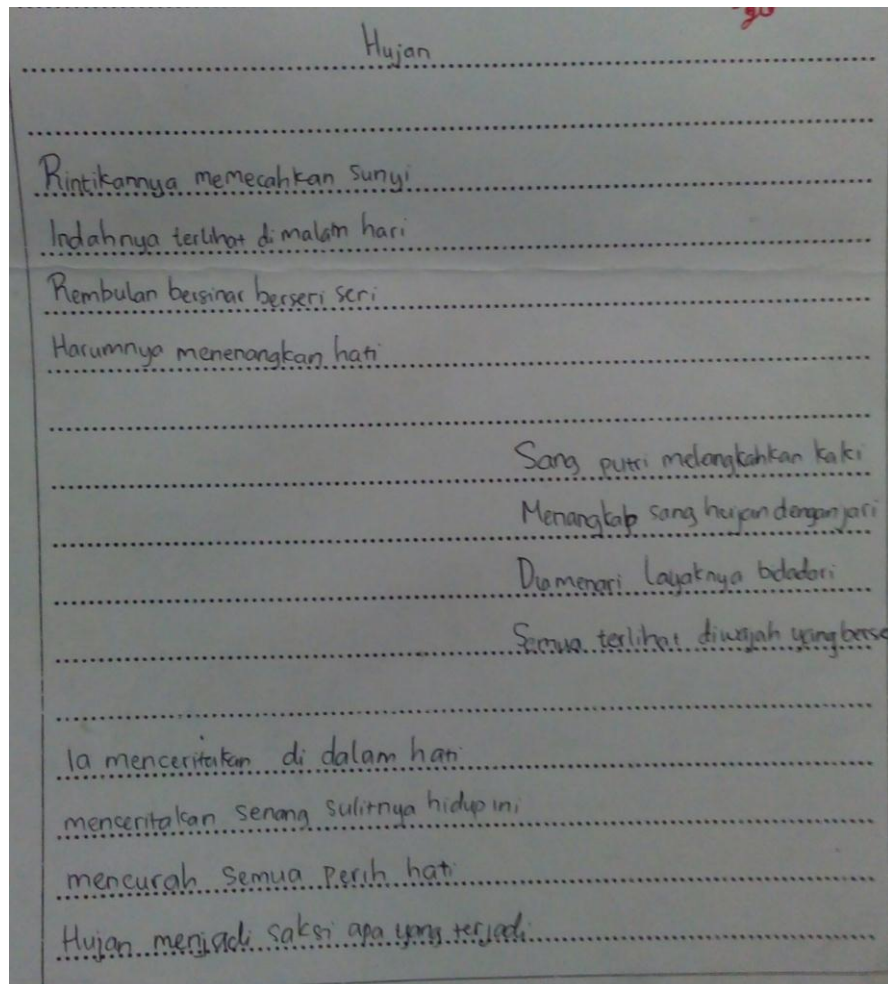 90
Hujan
Rintikannya memecahkan sunyi
Indahnya terlihat di malam hari
Rembulan bersinar berseri seri
Harumnya menenangkan hati
Sang putri melangkahkan kaki
Menangkap sang hujan dengan jari
Dia menari layaknya bidadari
Semua terlihat diwajah yang berse
Ia menceritakan di dalam hati
menceritakan senang sulitnya hidup ini
mencurah semua perih hati
Hujan menjadi saksi apa yang terjadi